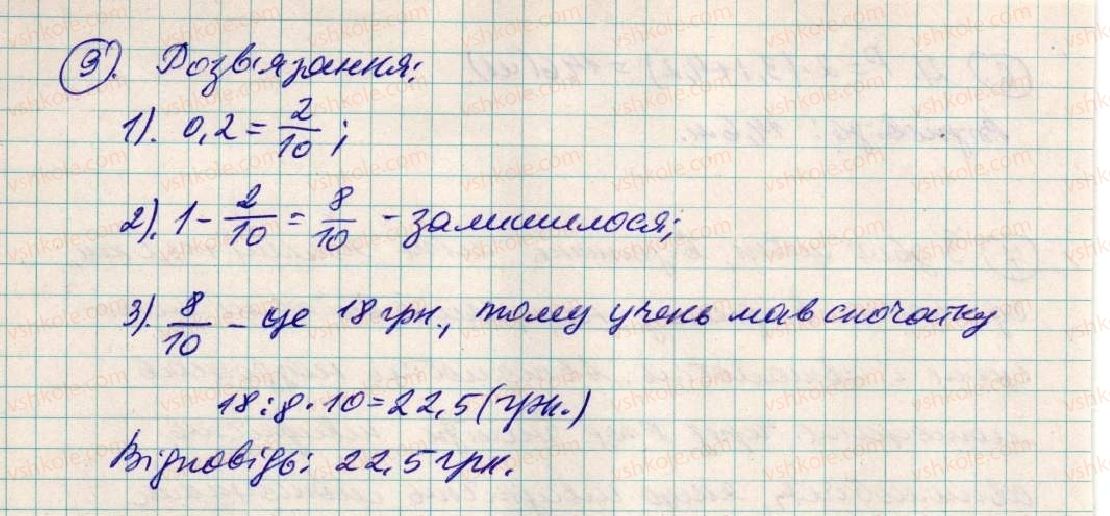 9). Розв'язання:
1). 0,2 = 2/10 ;
2). 1 - 2/10 = 8/10 - залишилося;
3). 8/10 - це 18 грн., тому учень мав спочатку
18 : 8 · 10 = 22,5 (грн.)
Відповідь: 22,5 грн.